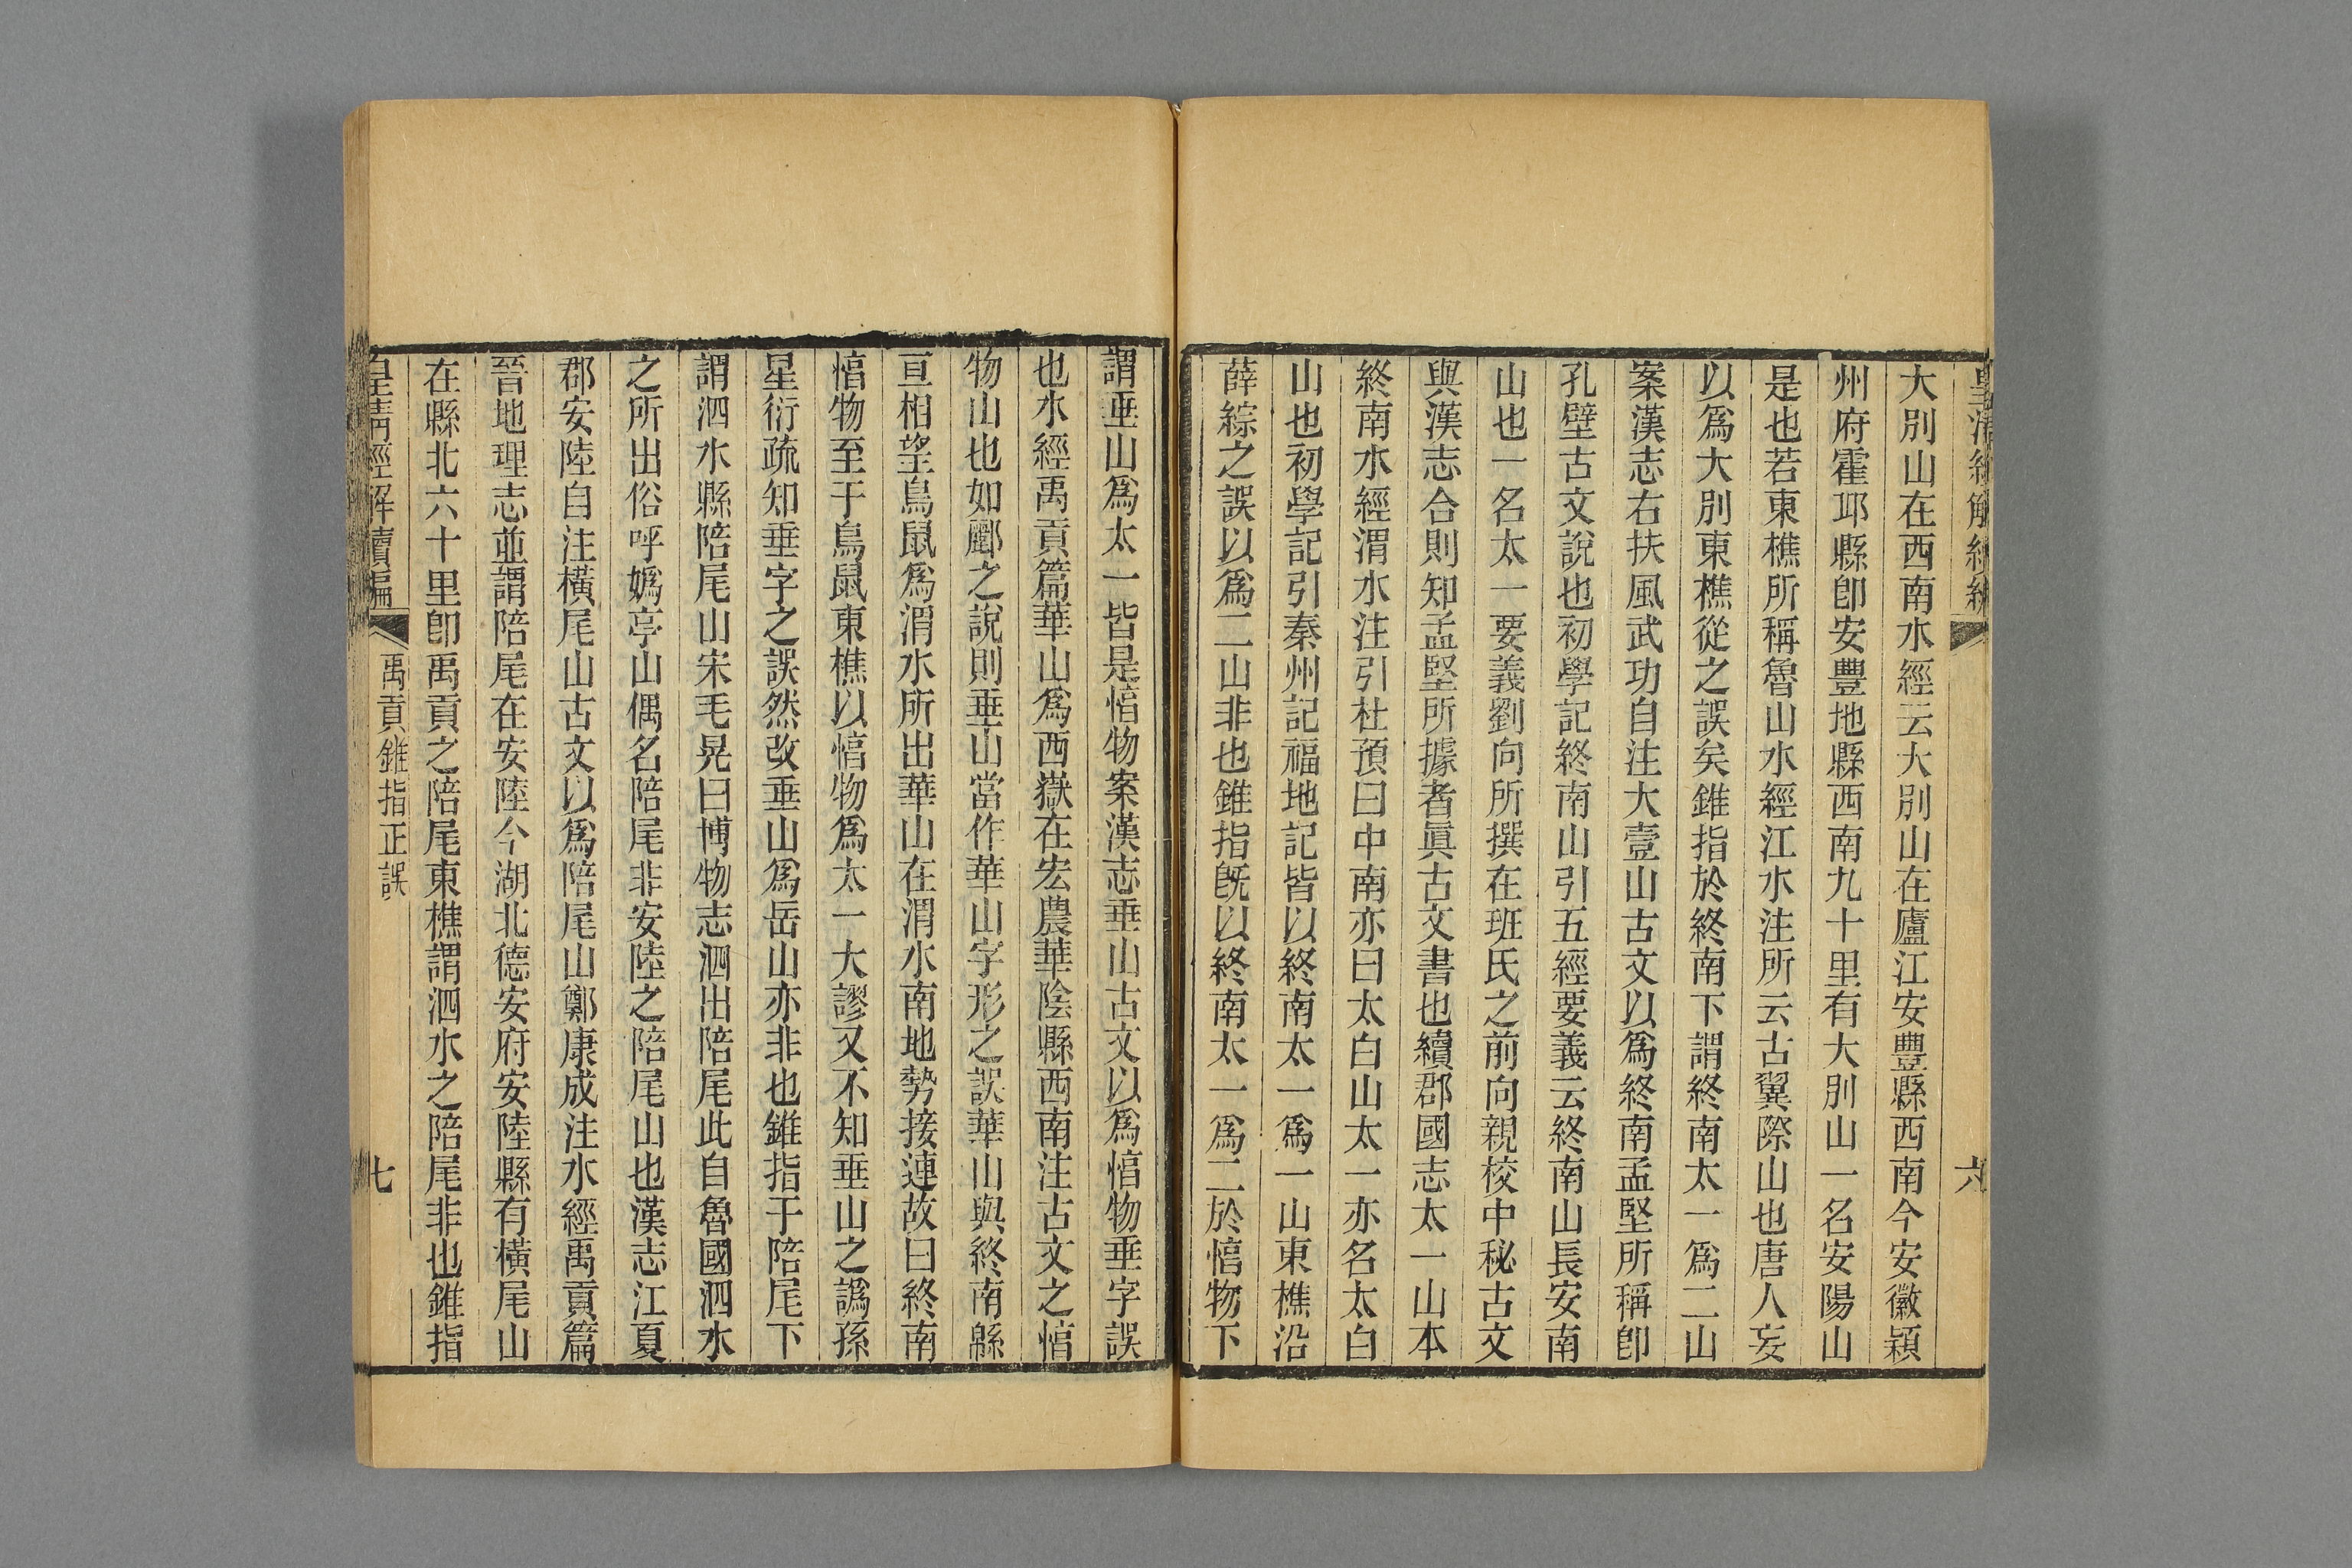 大別山在西南水經云大別山在廬江安豐縣西南今安徽潁
州府霍邱縣卽安豐地縣西南九十里有大別山一名安陽山
是也若東樵所稱魯山水經江水注所云古翼際山也唐人妄
以爲大別東樵從之誤矣錐指於終南下謂終南太一爲二山
案漢志右扶風武功自注大壹山古文以爲終南孟堅所稱卽
孔壁古文說也初學記終南山引五經要義云終南山長安南
山也一名太一要義劉向所撰在班氏之前向親校中秘古文
與漢志合則知孟堅所據者眞古文書也續郡國志太一山本
終南水經渭水注引杜預曰中南亦曰太白山太一亦名太白
山也初學記引秦州記福地記皆以終南太一爲一山東樵沿
薛綜之誤以爲二山非也錐指旣以終南太一爲二於惇物下
謂垂山爲太一皆是惇物案漢志垂山古文以爲惇物垂字誤
也水經禹貢篇華山爲西嶽在宏農華陰縣西南注古文之惇
物山也如酈之說則垂山當作華山字形之誤華山與終南緜
亘相望鳥鼠爲渭水所出華山在渭水南地勢接連故曰終南
惇物至于鳥鼠東樵以惇物爲太一大謬又不知垂山之譌孫
星衍疏知垂字之誤然改垂山爲岳山亦非也錐指于陪尾下
謂泗水縣陪尾山宋毛晃曰博物志泗出陪尾此自魯國泗水
之所出俗呼嬀亭山偶名陪尾非安陸之陪尾山也漢志江夏
郡安陸自注橫尾山古文以爲陪尾山鄭康成注水經禹貢篇
晉地理志並謂陪尾在安陸今湖北德安府安陸縣有橫尾山
在縣北六十里卽禹貢之陪尾東樵謂泗水之陪尾非也錐指
皇淸經解續編
禹貢錐指正誤
七
六